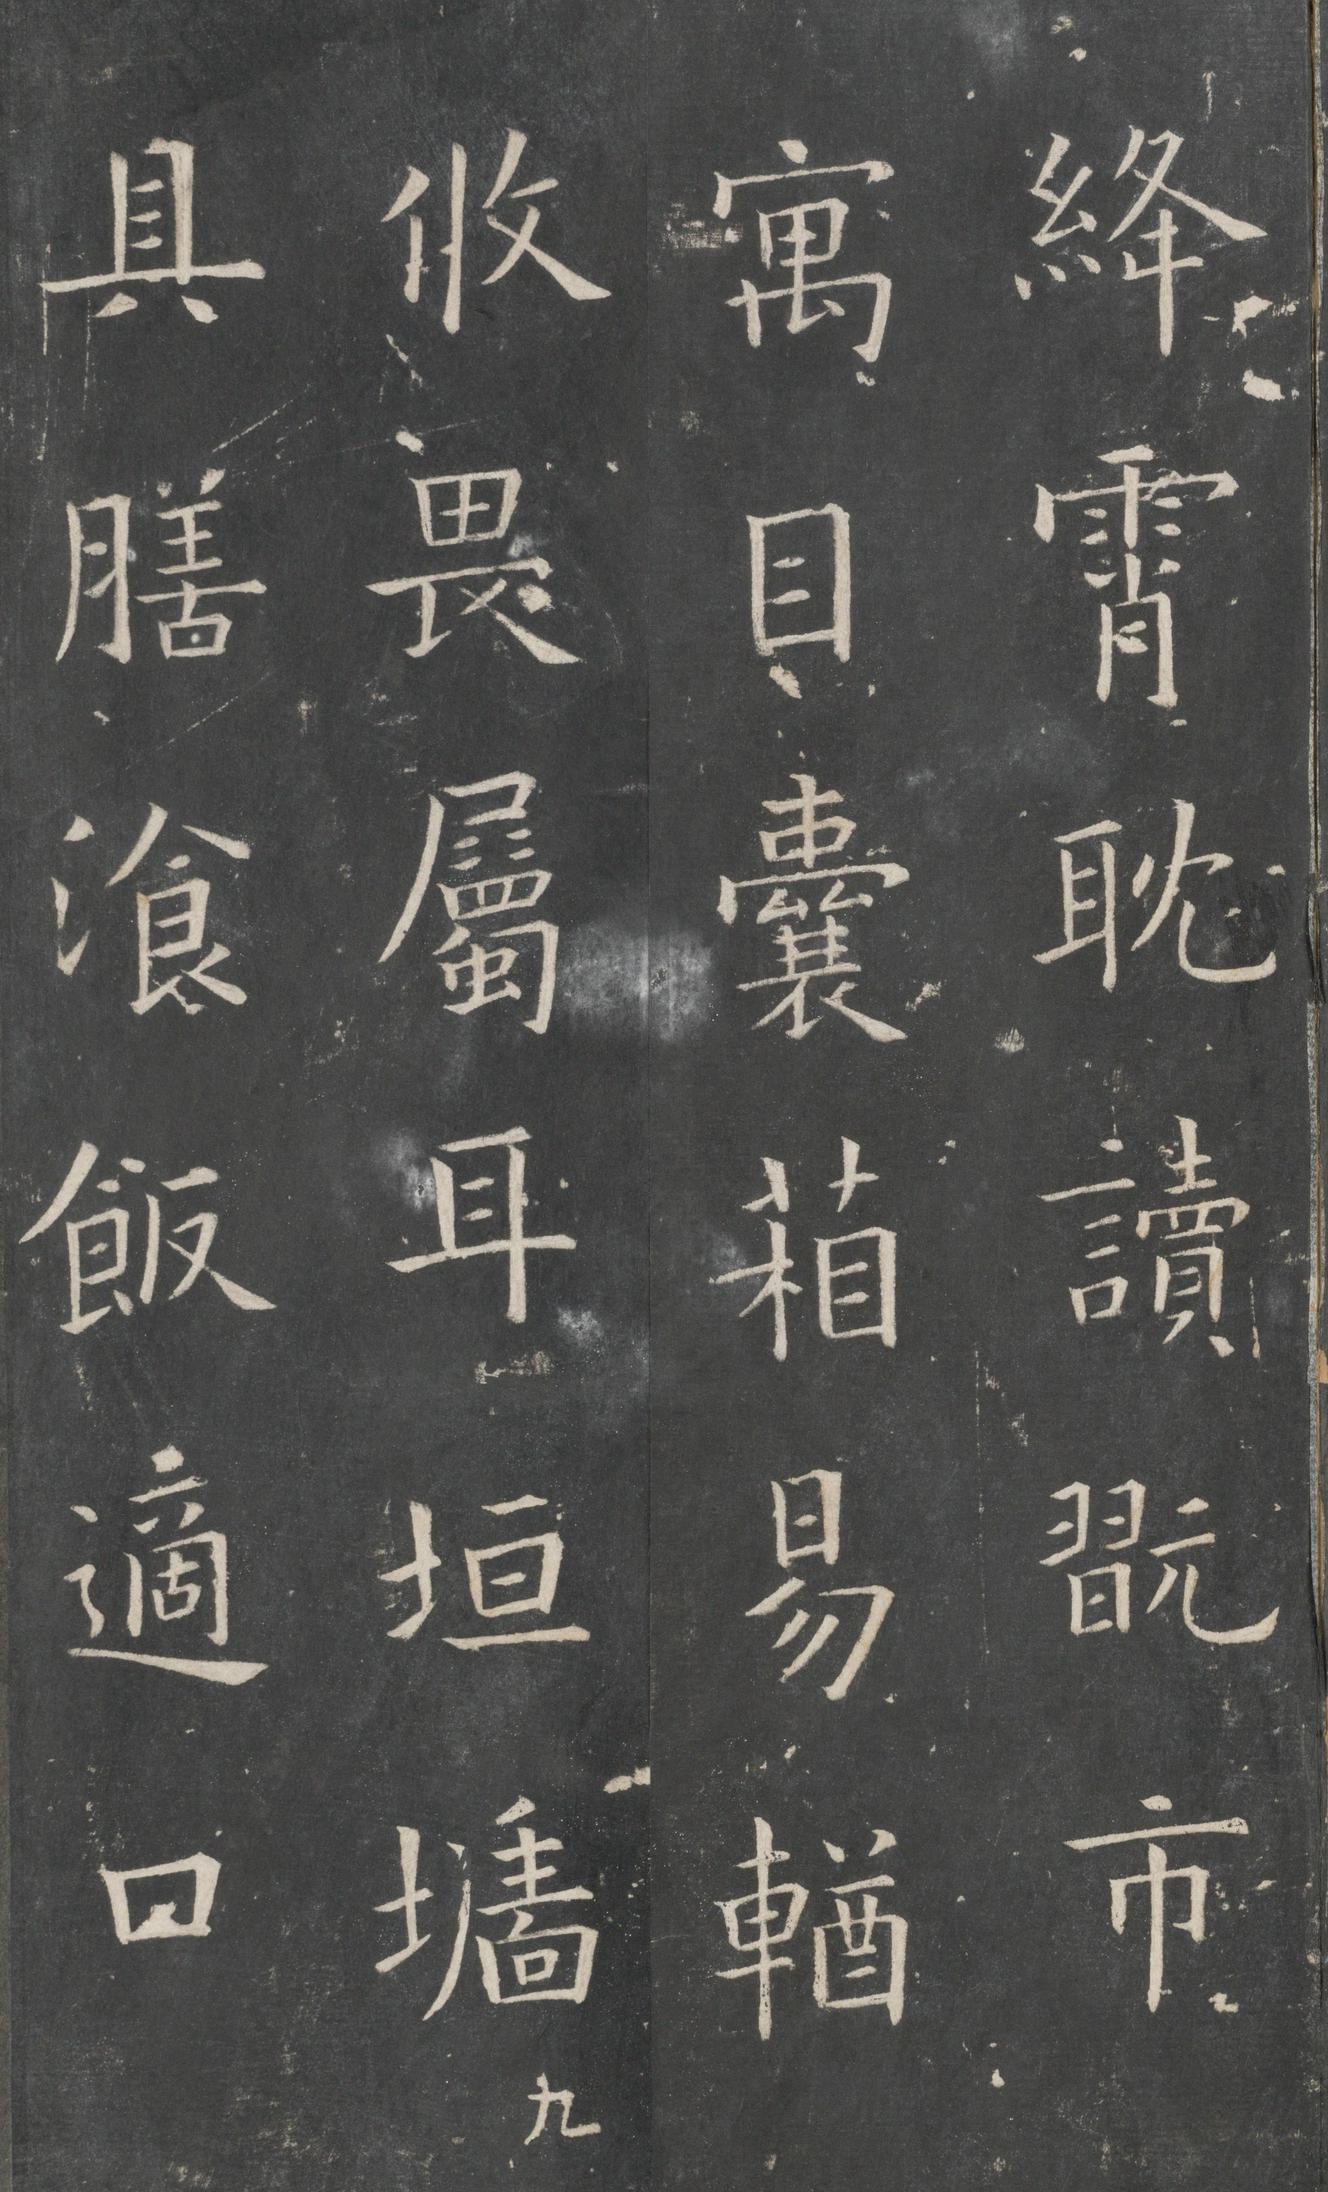 絳霄耽讀翫市
寓目囊葙易輶
攸畏屬耳垣墻
九
具膳飡飯適口